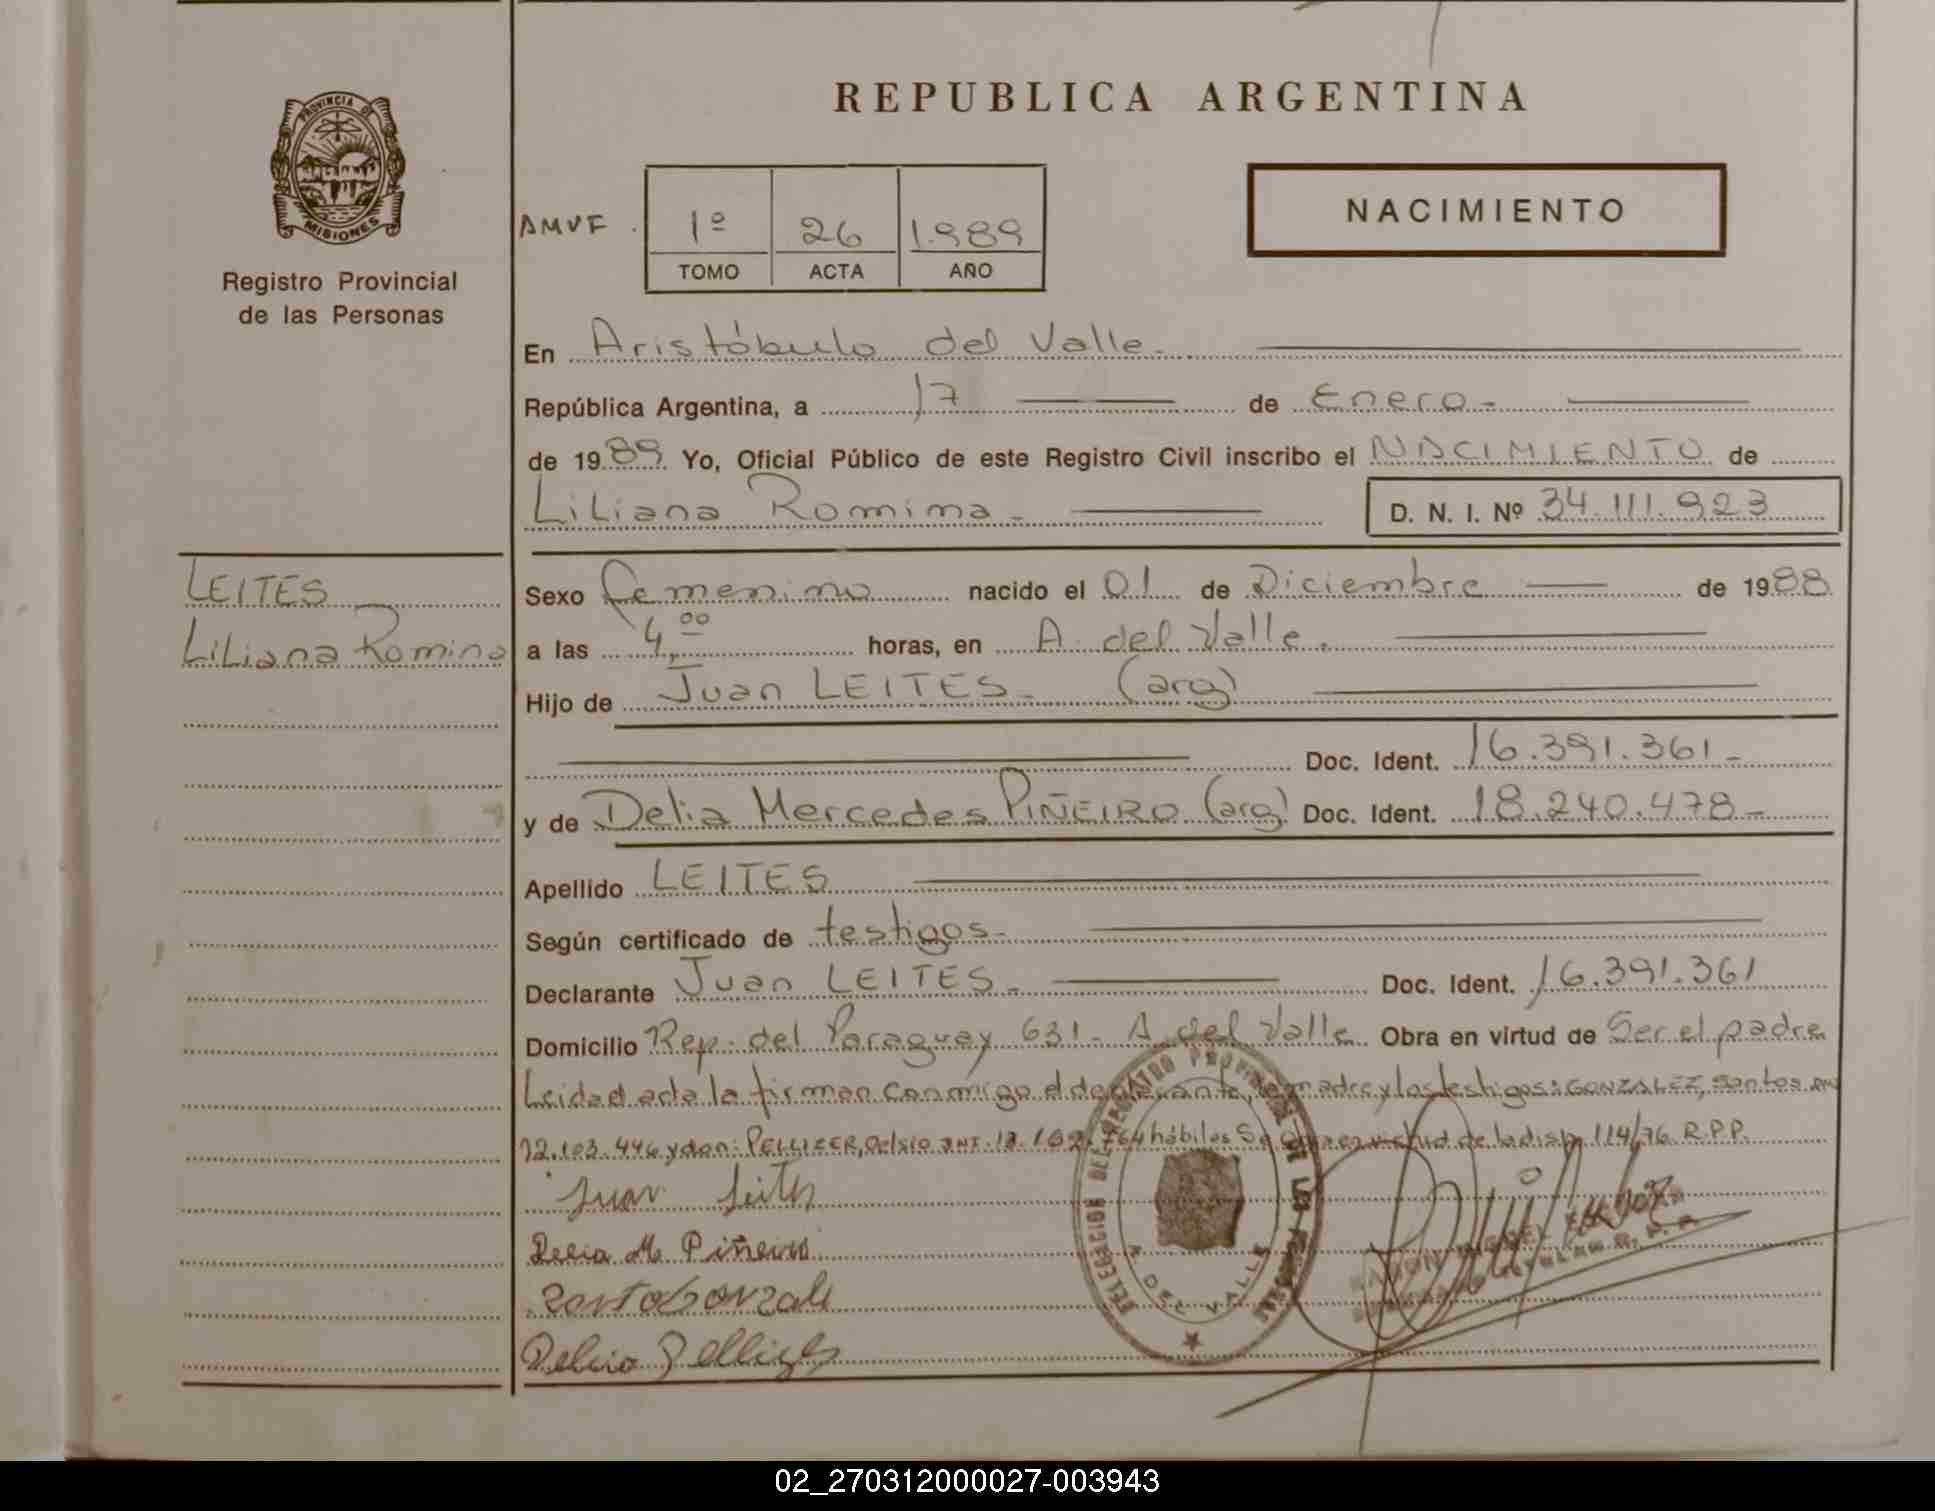 REPUBLICA ARGENTINA
PROVINCIA DE
MISIONES
Registro Provincial
de las Personas
AMVF
1º 26 1.989
TOMO ACTA AÑO
NACIMIENTO
En Aristóbulo del Valle.
República Argentina, a 17 de Enero.
de 1989. Yo, Oficial Público de este Registro Civil inscribo el NACIMIENTO de
Liliana Romina. D. N. I. Nº 34.111.923
LEITES
Liliana Romina
Sexo femenino nacido el 01 de Diciembre de 1988
a las 4,00 horas, en A. del Valle.
Hijo de Juan LEITES. (arg)
Doc. Ident. 16.391.361-
y de Delia Mercedes PIÑEIRO (arg) Doc. Ident. 18.240.478-
Apellido LEITES
Según certificado de testigos.
Declarante Juan LEITES. Doc. Ident. 16.391.361
Domicilio Rep. del Paraguay 631- A. del Valle. Obra en virtud de Ser el padre
Leida el acta la firman conmigo el declarante, la madre y los testigos: GONZALEZ, Santos
12.103.446 y don: PELLIZER, Delsio hábiles Se virtud de la disp. 114/76 R.P.P.
Juan Leites
Delia M. Piñeiro
Santo Gonzale
Delcio Pellizer
DELEGACION DEL REGISTRO PROVINCIAL DE LAS PERSONAS
A. DEL VALLE
02_270312000027-003943